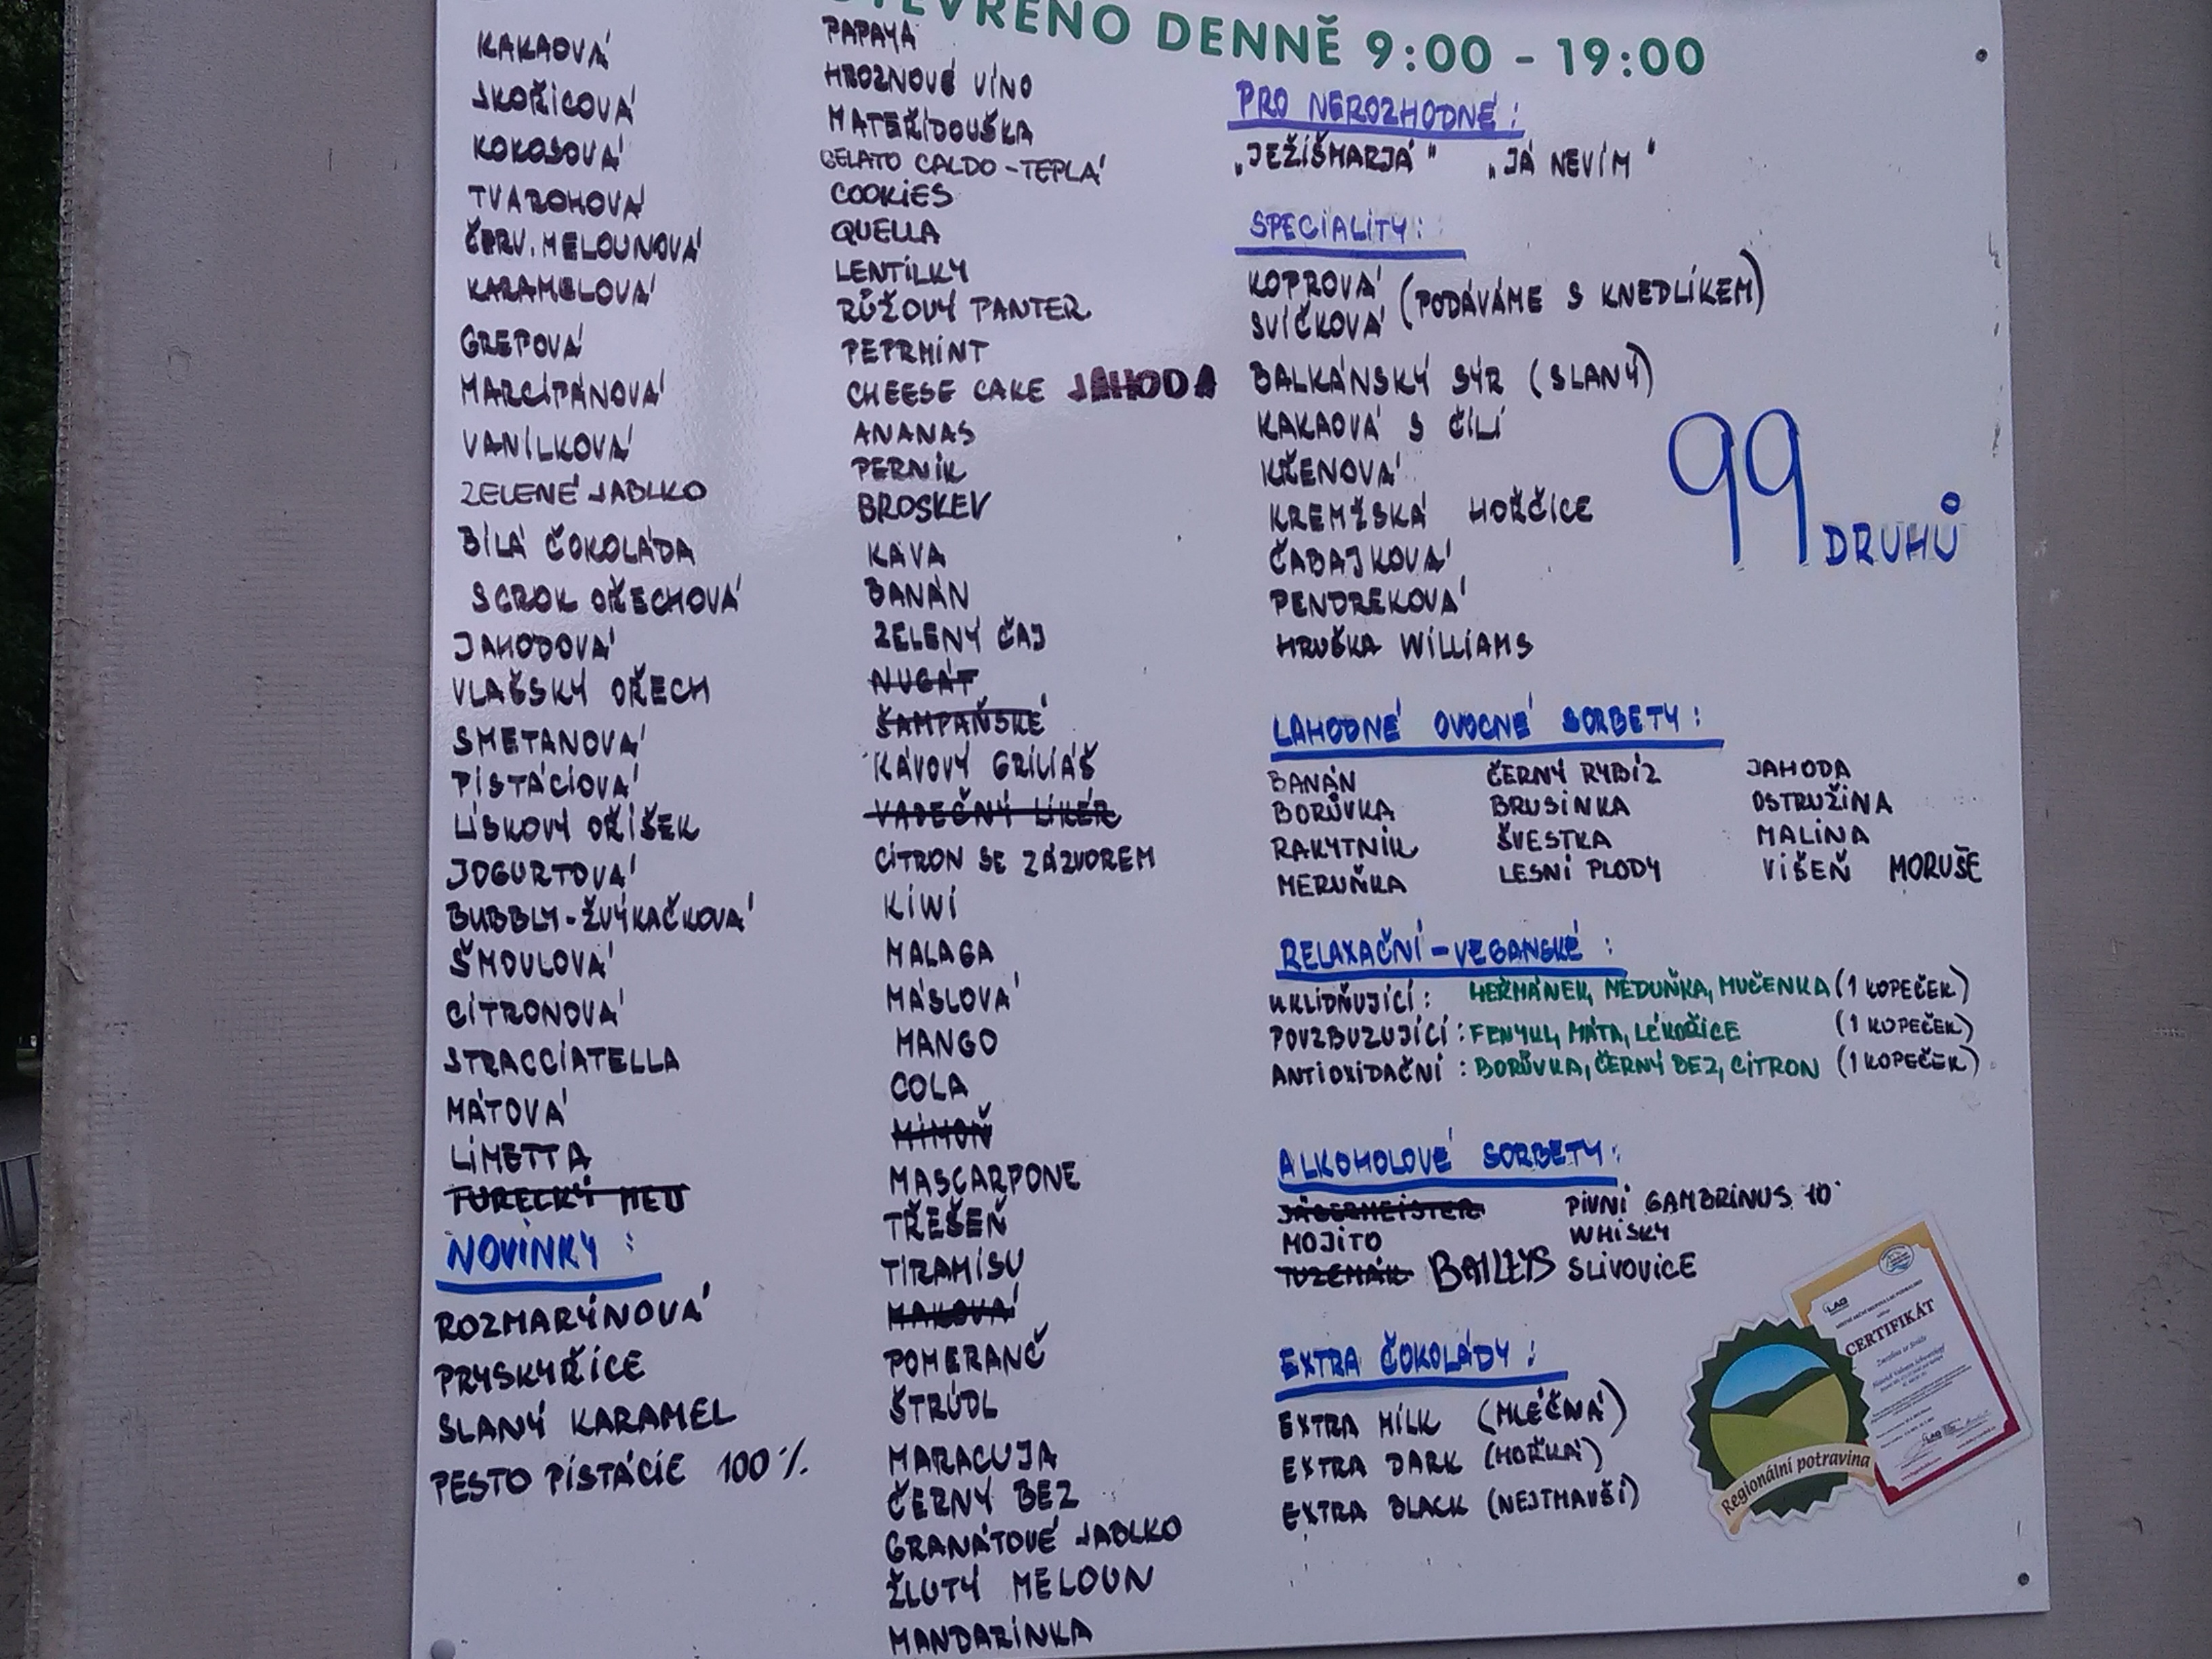 OTEVŘENO DENNĚ 9:00 - 19:00
KAKAOVÁ
SKOŘICOVÁ
KOKOSOVÁ
TVAROHOVÁ
ČERV. MELOUNOVÁ
KARAMELOVÁ
GREPOVÁ
MARCIPÁNOVÁ
VANILKOVÁ
ZELENÉ JABLKO
BÍLÁ ČOKOLÁDA
SCROK OŘECHOVÁ
JAHODOVÁ
VLAŠSKÝ OŘECH
SMETANOVÁ
PISTÁCIOVÁ
LÍSKOVÝ OŘÍŠEK
JOGURTOVÁ
BUBBLY-ŽVÝKAČKOVÁ
ŠMOULOVÁ
CITRONOVÁ
STRACCIATELLA
MÁTOVÁ
LIMETTA
TURECKÝ MED
NOVINKY:
ROZMARÝNOVÁ
PRYSKYŘICE
SLANÝ KARAMEL
PESTO PISTÁCIE 100%
PAPAYA
HROZNOVÉ VÍNO
MATEŘÍDOUŠKA
GELATO CALDO - TEPLÁ
COOKIES
QUELLA
LENTILKY
RŮŽOVÝ PANTER
PEPRMINT
CHEESE CAKE JAHODA
ANANAS
PERNÍK
BROSKEV
KÁVA
BANÁN
ZELENÝ ČAJ
NUGÁT
ŠAMPAŇSKÉ
KÁVOVÝ GRILIÁŠ
VAJEČNÝ LIKÉR
CITRON SE ZÁZVOREM
KIWI
MALAGA
MÁSLOVÁ
MANGO
COLA
MIMOŇ
MASCARPONE
TŘEŠEŇ
TIRAMISU
MAKOVÁ
POMERANČ
ŠTRÚDL
MARACUJA
ČERNÝ BEZ
GRANÁTOVÉ JABLKO
ŽLUTÝ MELOUN
MANDARINKA
PRO NEROZHODNÉ:
„JEŽÍŠMARJÁ" „JÁ NEVÍM"
SPECIALITY:
KOPROVÁ
SVÍČKOVÁ (PODÁVÁME S KNEDLÍKEM)
BALKÁNSKÝ SÝR (SLANÝ)
KAKAOVÁ S ČILI
KŘENOVÁ
KREMŽSKÁ HOŘČICE
ČABAJKOVÁ
PENDREKOVÁ
HRUŠKA WILLIAMS
99 DRUHŮ
LAHODNÉ OVOCNÉ SORBETY:
BANÁN ČERNÝ RYBÍZ JAHODA
BORŮVKA BRUSINKA OSTRUŽINA
RAKYTNÍK ŠVESTKA MALINA
MERUŇKA LESNÍ PLODY VIŠEŇ MORUŠE
RELAXAČNÍ - VEGANSKÉ:
UKLIDŇUJÍCÍ: HEŘMÁNEK, MEDUŇKA, MUČENKA (1 KOPEČEK)
POVZBUZUJÍCÍ: FENYKL, MÁTA, LÉKOŘICE (1 KOPEČEK)
ANTIOXIDAČNÍ: BORŮVKA, ČERNÝ BEZ, CITRON (1 KOPEČEK)
ALKOHOLOVÉ SORBETY:
JÄGERMEISTER PIVNÍ GAMBRINUS 10°
MOJITO WHISKY
TUZEMÁK BAILEYS SLIVOVICE
EXTRA ČOKOLÁDY:
EXTRA MILK (MLÉČNÁ)
EXTRA DARK (HOŘKÁ)
EXTRA BLACK (NEJTMAVŠÍ)
LAG
CERTIFIKÁT
Regionální potravina